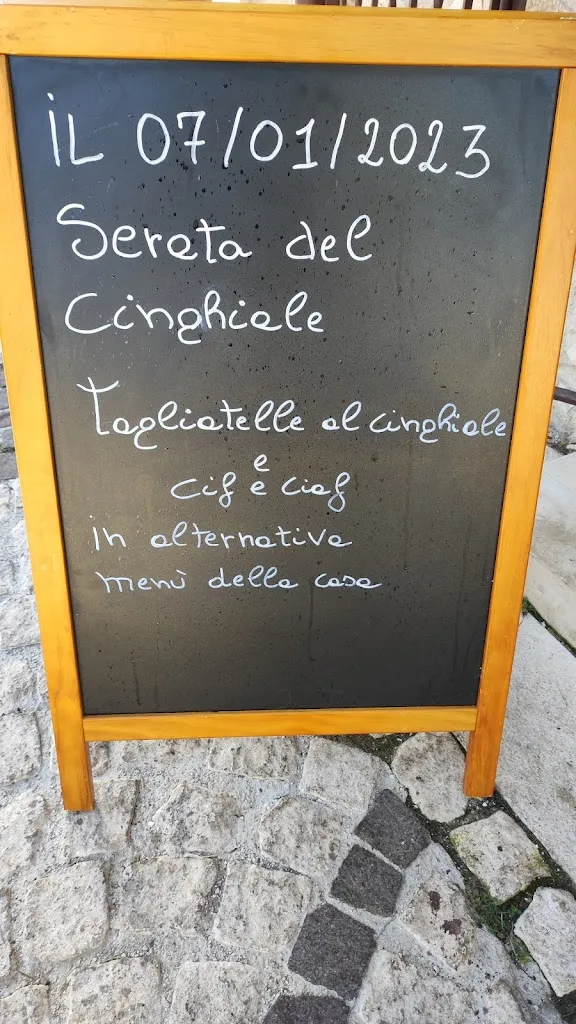 IL 07/01/2023
Serata del
Cinghiale
Tagliatelle al cinghiale
e
Cif e Ciaf
in alternativa
menù della casa